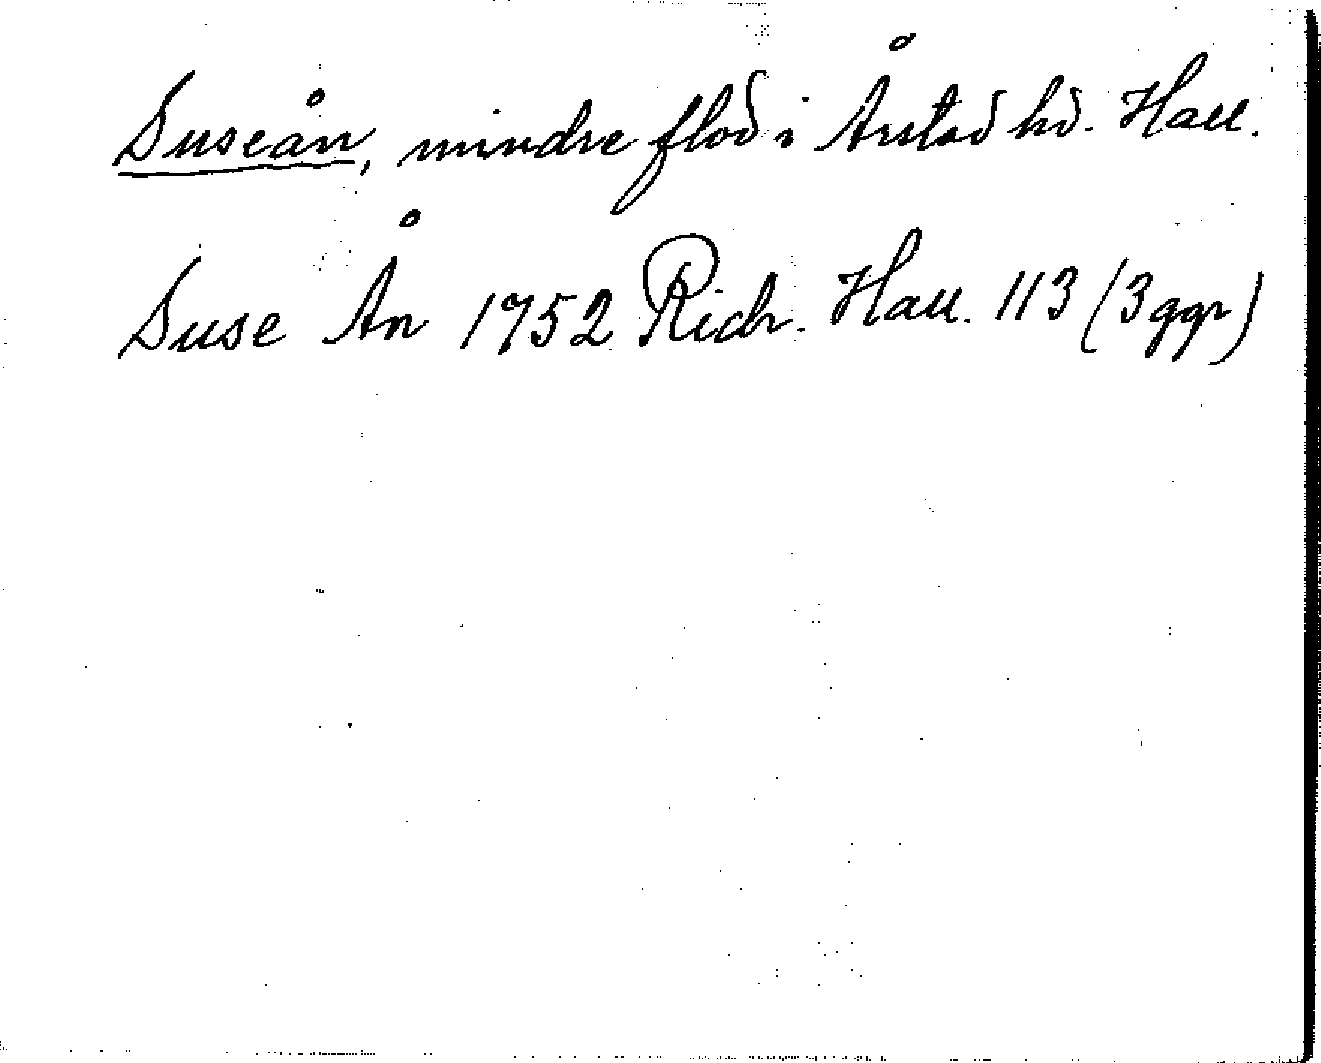 Suseån, mindre flod i Årstad hd. Hall.
Suse Ån 1752 Rich. Hall. 113 (3 ggr)